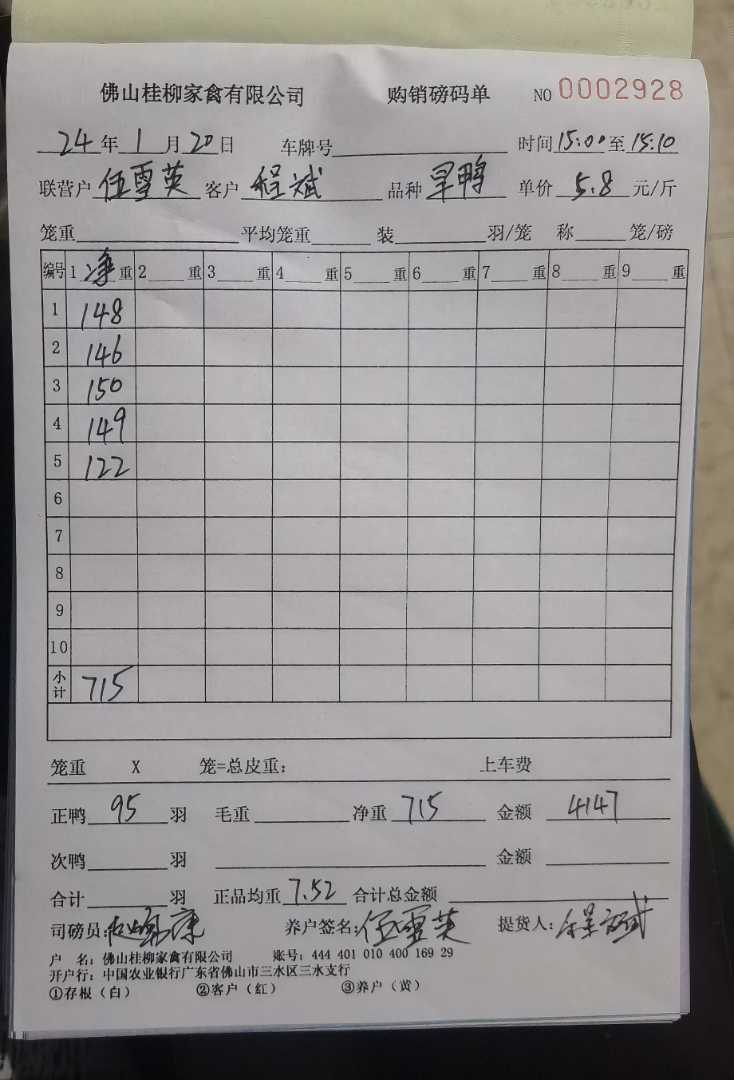 佛山桂柳家禽有限公司 购销磅码单 NO 0002928
24年1月20日 车牌号 时间15:00至15:10
联营户 伍雪英 客户 程斌 品种 旱鸭 单价 5.8 元/斤
笼重 平均笼重 装 羽/笼 称 笼/磅
编号 1 净 重 2 重 3 重 4 重 5 重 6 重 7 重 8 重 9 重
1 148
2 146
3 150
4 149
5 122
6
7
8
9
10
小计 715
笼重 X 笼=总皮重: 上车费
正鸭 95 羽 毛重 净重 715 金额 4147
次鸭 羽 金额
合计 羽 正品均重 7.52 合计总金额
司磅员: 养户签名: 伍雪英 提货人: 程斌
户 名: 佛山桂柳家禽有限公司 账号: 444 401 010 400 169 29
开户行: 中国农业银行广东省佛山市三水区三水支行
①存根（白） ②客户（红） ③养户（黄）